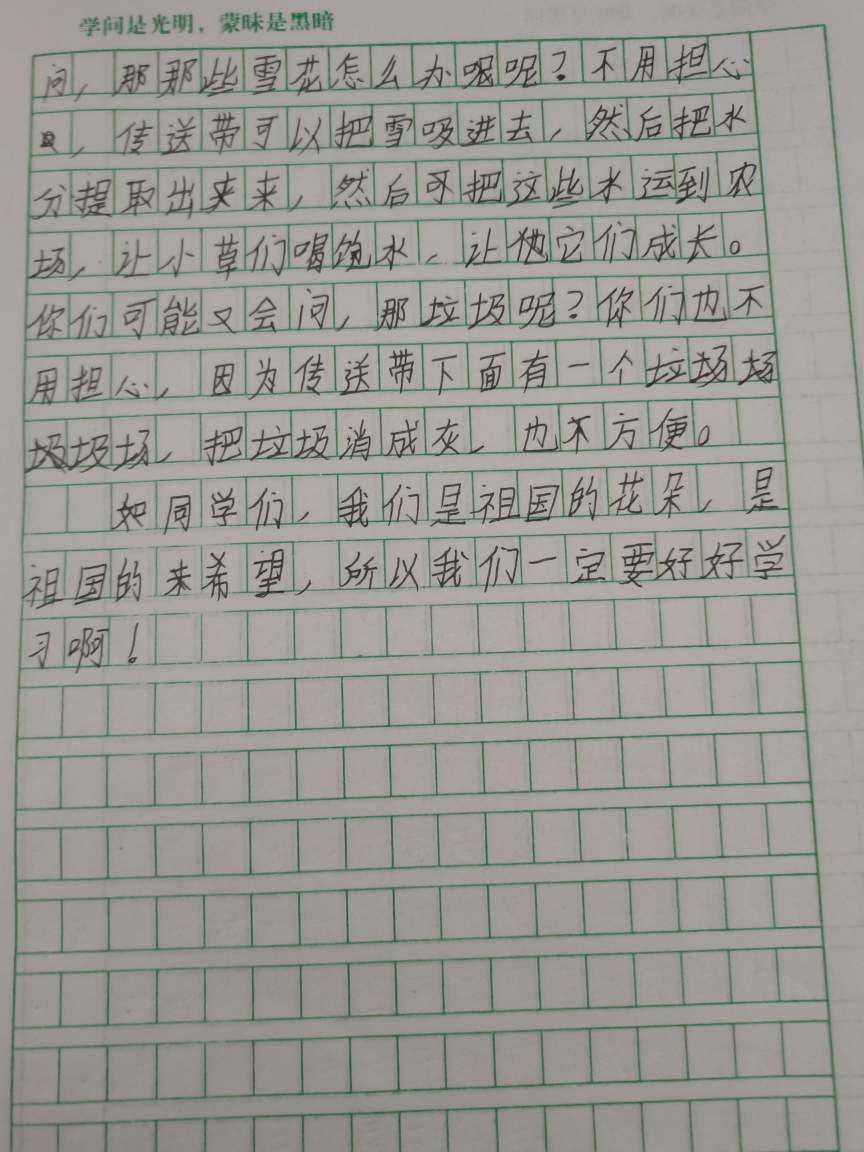 学问是光明，蒙昧是黑暗
问，那那些雪花怎么办呢呢？不用担心
，传送带可以把雪吸进去，然后把水
分提取出来来，然后可把这些水运到农
场，让小草们喝饱水，让他它们成长。
你们可能又会问，那垃圾呢？你们也不
用担心，因为传送带下面有一个垃场场
圾圾场，把垃圾消成灰，也不方便。
如同学们，我们是祖国的花朵，是
祖国的来希望，所以我们一定要好好学
习啊！